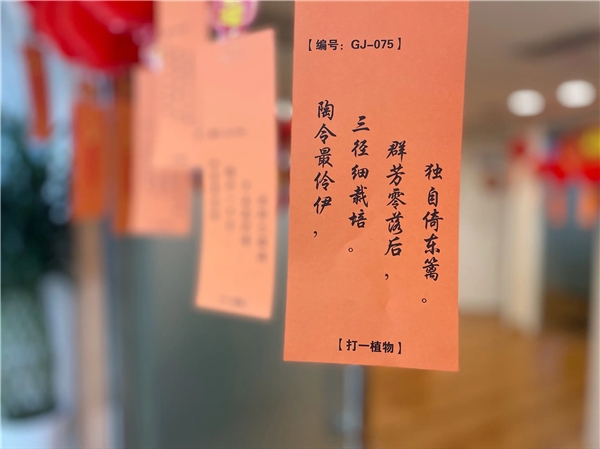 【编号：GJ-075】
陶令最伶伊，
三径细栽培。
群芳零落后，
独自倚东篱。
【打一植物】